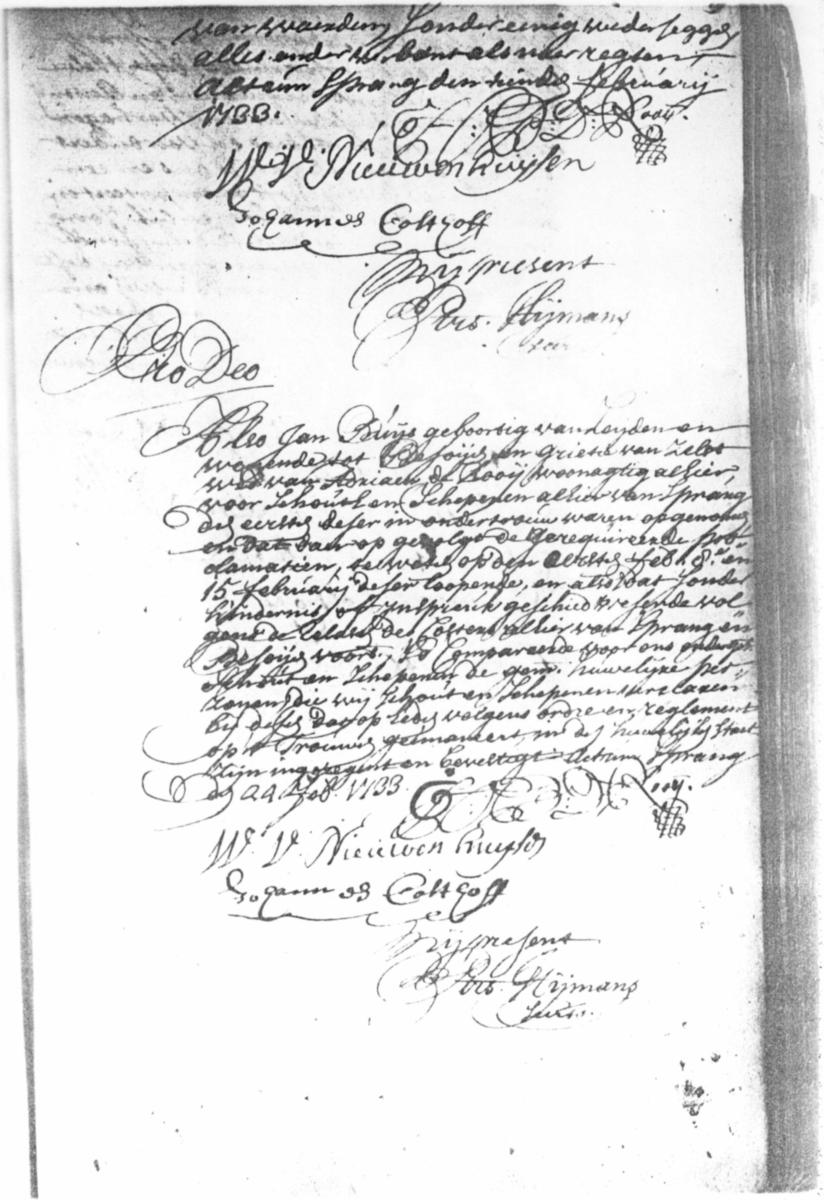 van waerden sonder eenig weder seggen
alles onder verbant als naer regten
Actum Sprang den tienden februarij
1733.
Rooij.
W. V. Nieuwenhuijsen
Johannes Colthoff
Mij present
Pets. Hijmans
Pro Deo
Also Jan Buijs geboortig van Leyden en
wesende tot Besoijen en Grietie van Zelst
wed van Adriaen de Rooij woonagtig alhier
voor Schout en Schepenen alhier van Sprang
den eersten deser in ondertrouw waren opgenomen
en dat daer op gevolgt de gerequireerde pro
clamatien, te weten op den eersten feb. 8en en
15 februarij deser loopende, en also dat sonder
hindernis of inspraak geschiet wesende vol
gens de Celdul des Costers alhier van Sprang en
Besoijen voors. So Compareerde voor ons ondergets.
Schout en Schepenen de gem. huwelijke per
zonen, die wij Schout en Schepenen verclaren
bij desen dag op heden volgens ordre en reglement
op t Trouwen geëmaneert, in den huwelijken staet
zijn ingezegent en bevestigt Actum Sprang
den 24 feb. 1733.
Rooij.
W. V. Nieuwenhuijsen
Johannes Colthoff
Mij present
Pets. Hijmans